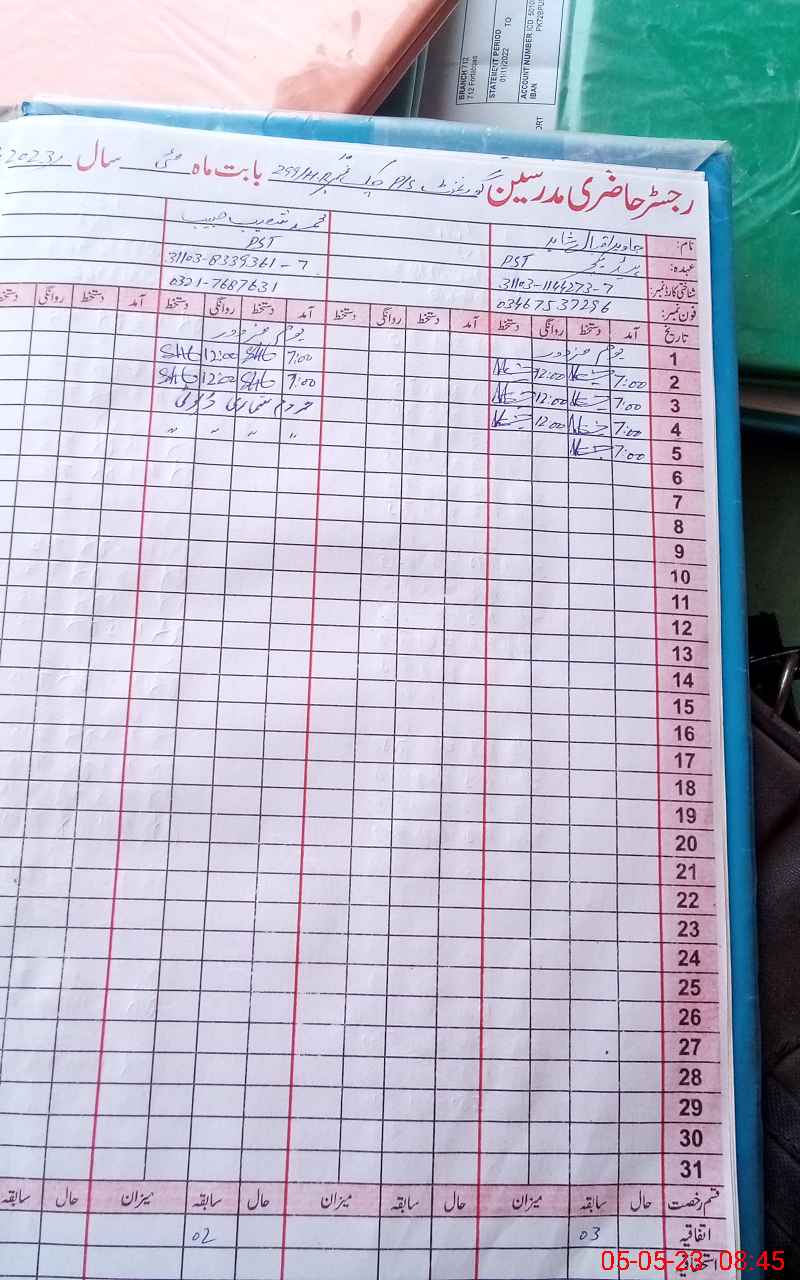 BRANCH 712
712 Fortabbas
STATEMENT PERIOD
01/11/2022 TO
ACCOUNT NUMBER
IBAN
رجسٹر حاضری مدرسین گورنمنٹ P/S چک نمبر 299/H.R بابت ماہ مئی سال 2023ء
نام: جاوید اقبال شاہد محمد شعیب حبیب
عہدہ: PST PST
شناختی کارڈ نمبر: 31103-1144273-7 31103-8339361-7
فون نمبر: 03467537296 0321-7687631
تاریخ آمد دستخط روانگی دستخط آمد دستخط روانگی دستخط آمد دستخط روانگی دستخط آمد دستخط روانگی دستخط
1 یوم مزدور یوم مزدور
2 7:00 12:00 7:00 SHG 12:00 SHG
3 7:00 12:00 7:00 SHG 12:00 SHG
4 7:00 12:00 مردم شماری ڈیوٹی
5 7:00 〃 〃 〃 〃
6
7
8
9
10
11
12
13
14
15
16
17
18
19
20
21
22
23
24
25
26
27
28
29
30
31
قسم رخصت حال سابقہ میزان حال سابقہ میزان حال سابقہ میزان حال سابقہ
اتفاقیہ 03 02
05-05-23 08:45